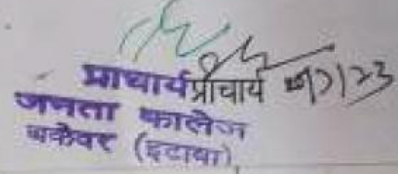 प्राचार्य प्राचार्य
जनता कालेज
बकेवर (इटावा)